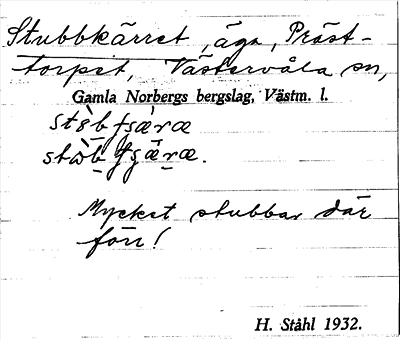 Stubbkärret, äga, Präst-
torpet, Västervåla sn,
Gamla Norbergs bergslag, Västm. l.
Mycket stubbar där
förr!
H. Ståhl 1932.